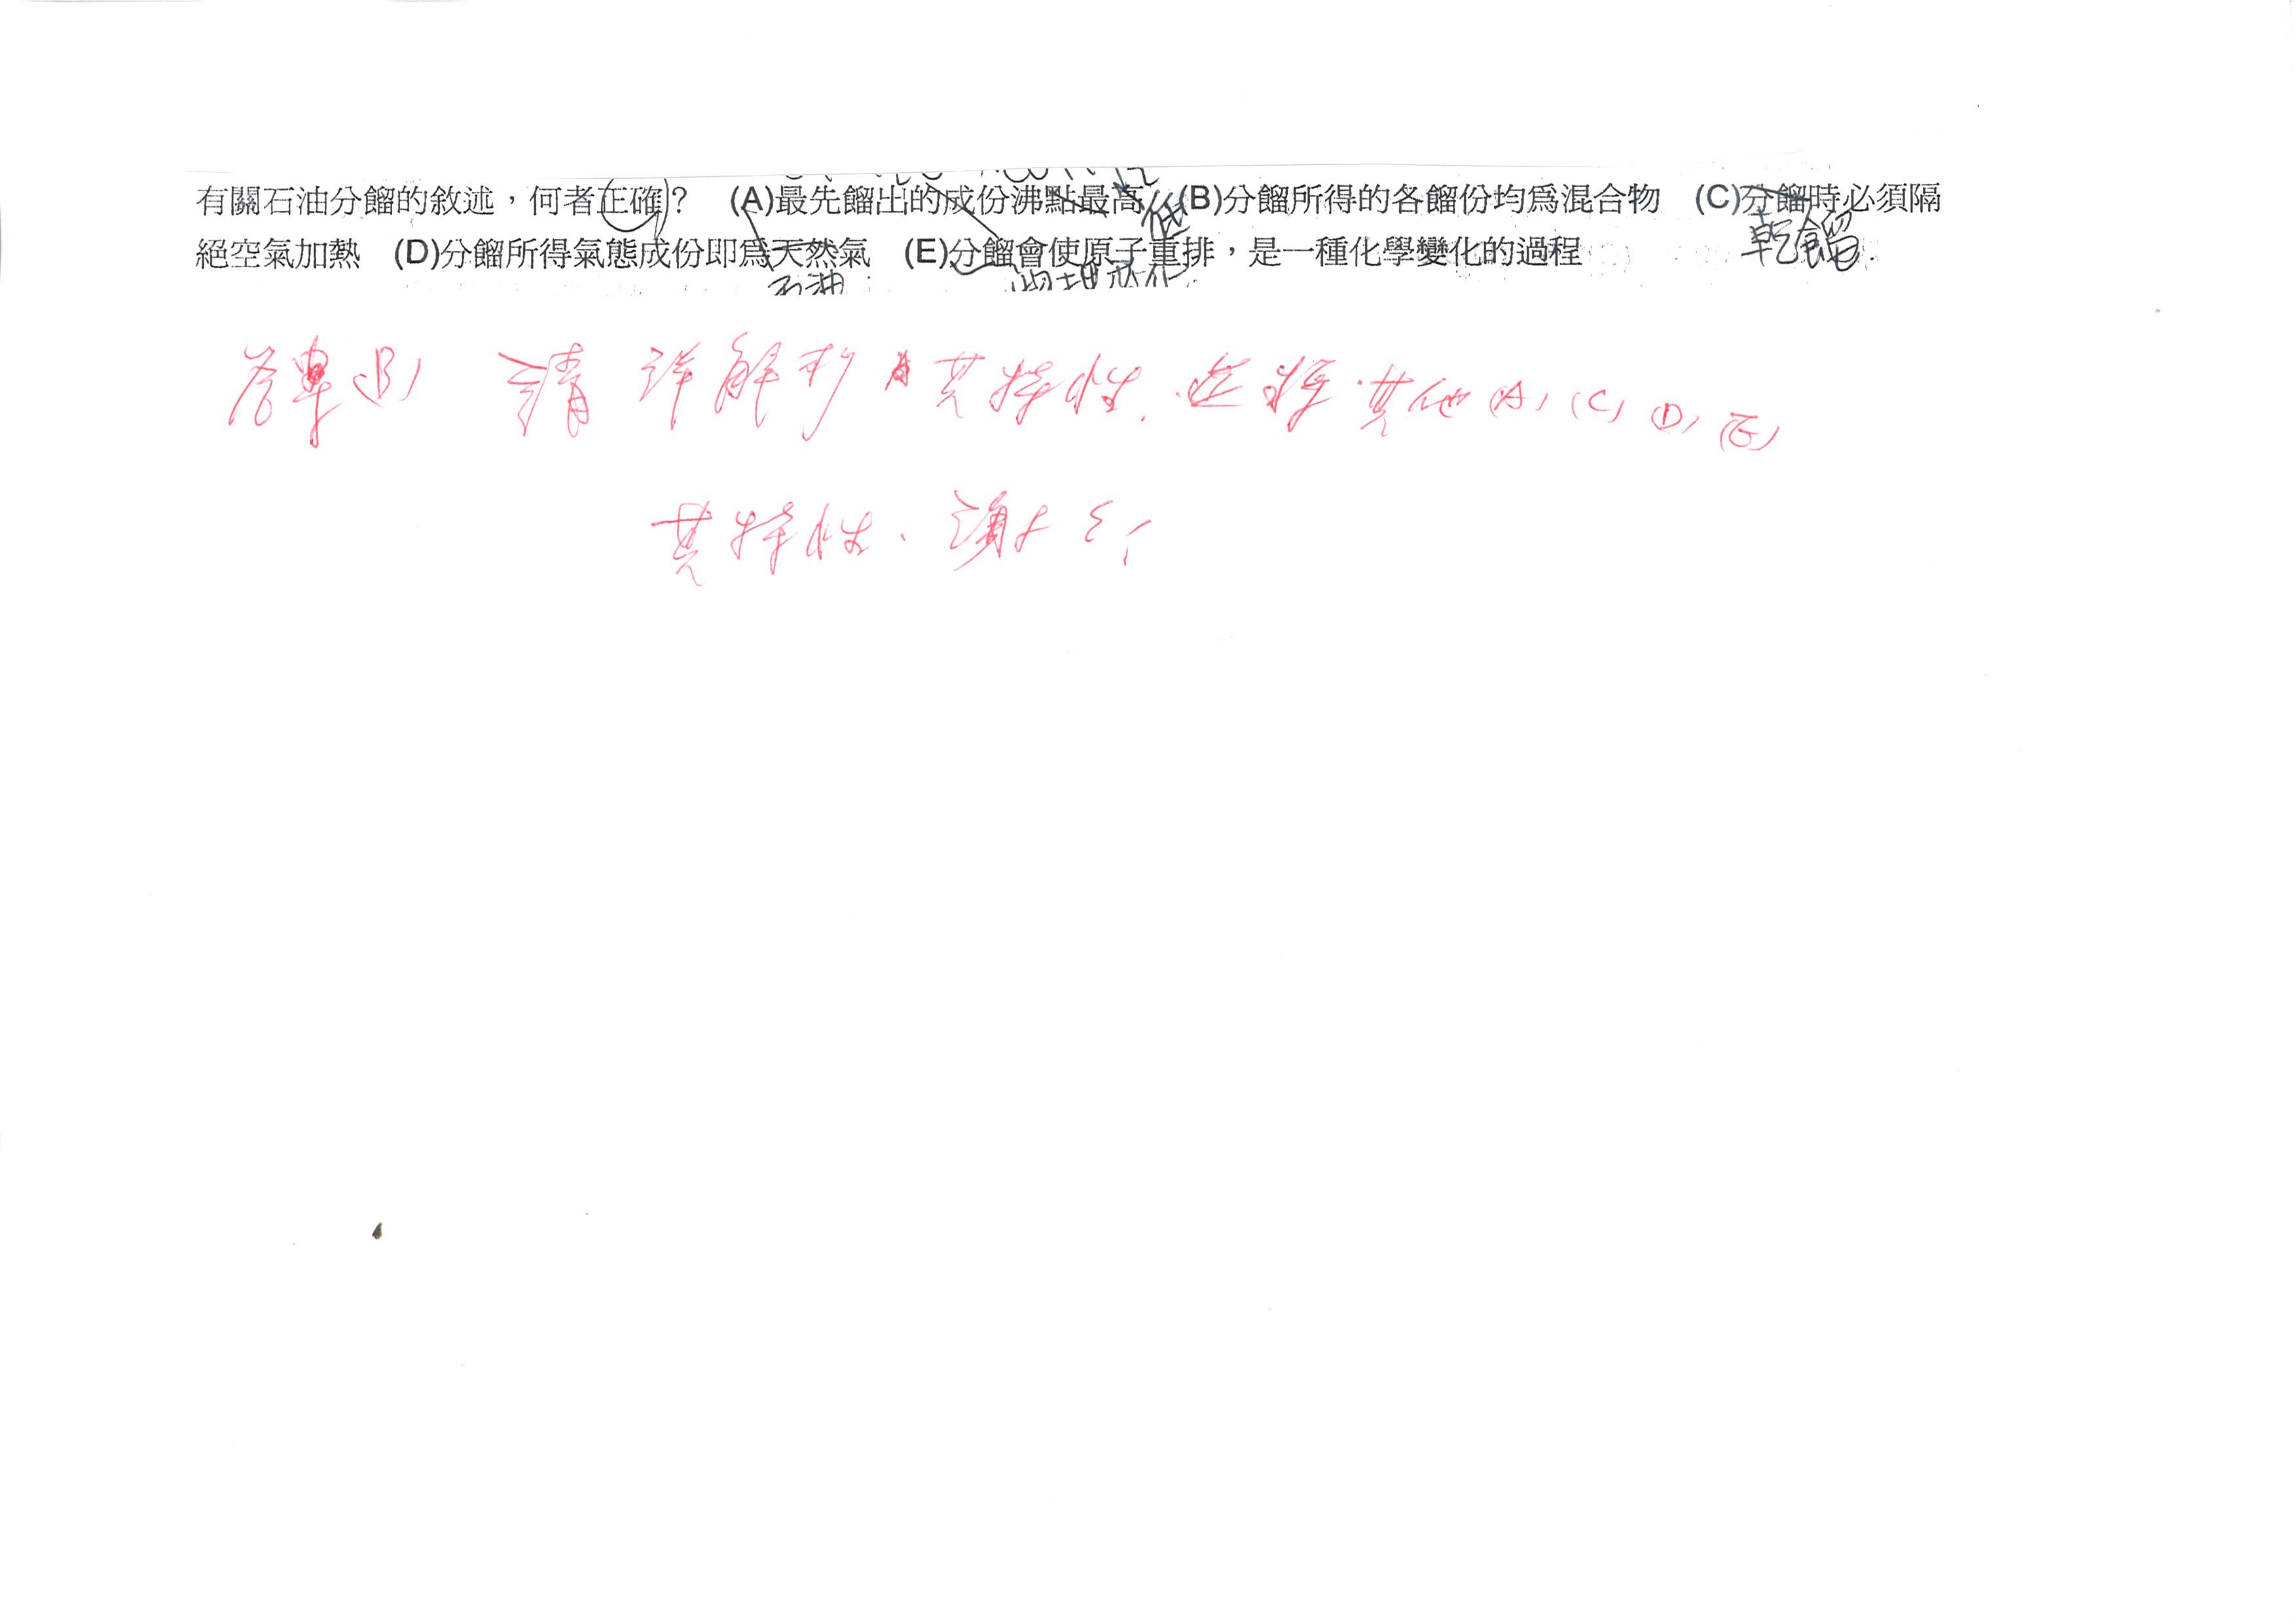 有關石油分餾的敘述，何者正確？ (A)最先餾出的成份沸點最高 (B)分餾所得的各餾份均為混合物 (C)分餾時必須隔
低
乾餾.
絕空氣加熱 (D)分餾所得氣態成份即為天然氣 (E)分餾會使原子重排，是一種化學變化的過程
石油
物理變化
答單選(B) 請詳解 其特性. 選擇.其他(A)(C)(D)(E)
其特性、謝謝